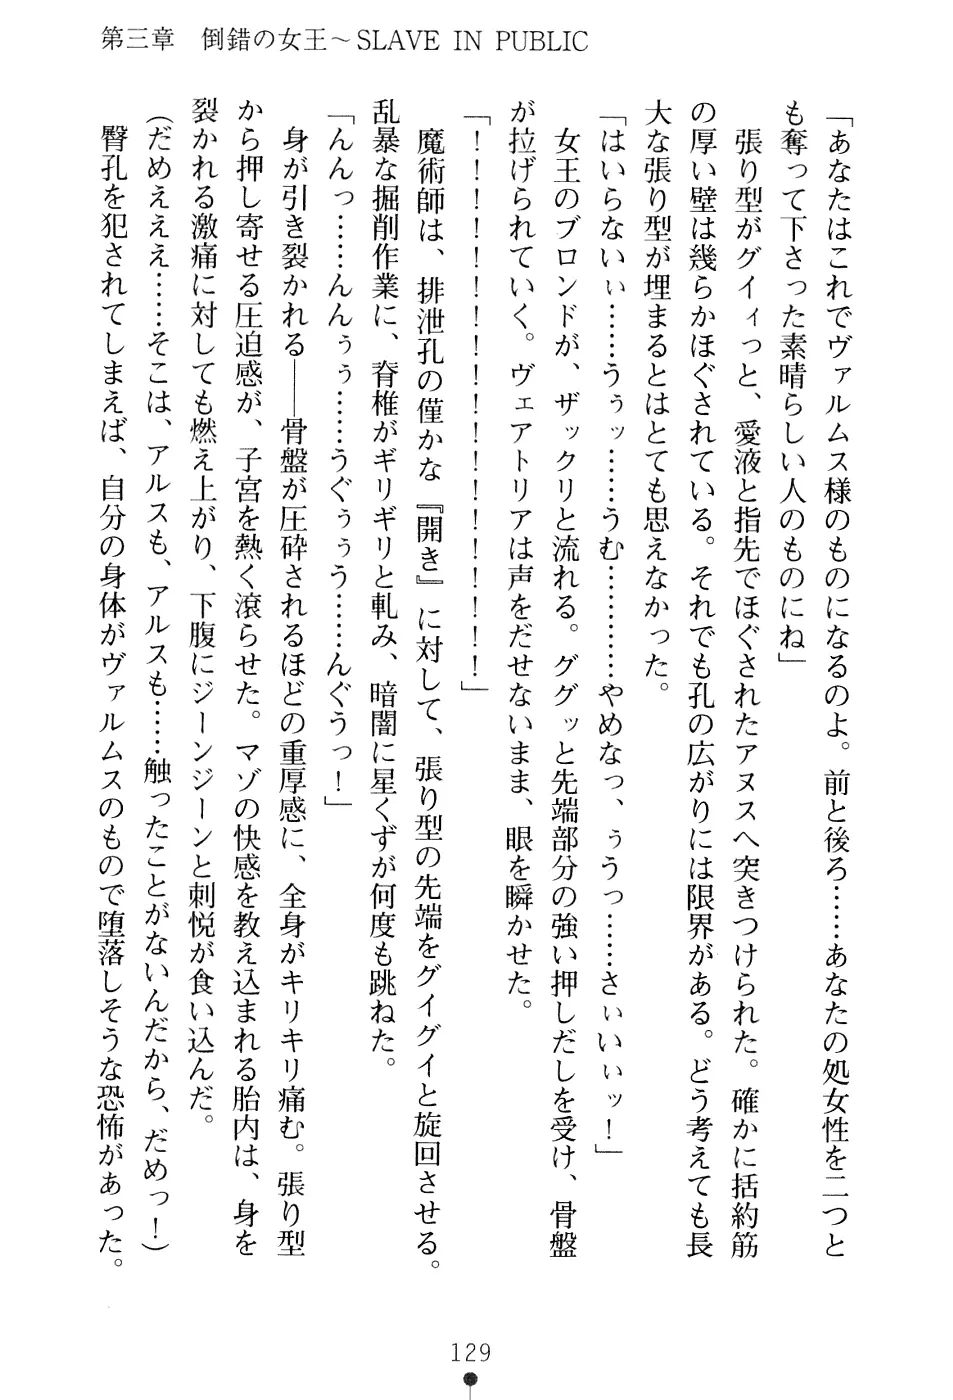 第三章　倒錯の女王～SLAVE IN PUBLIC
「あなたはこれでヴァルムス様のものになるのよ。前と後ろ……あなたの処女性を二つと
も奪って下さった素晴らしい人のものにね」
張り型がグイィっと、愛液と指先でほぐされたアヌスへ突きつけられた。確かに括約筋
の厚い壁は幾らかほぐされている。それでも孔の広がりには限界がある。どう考えても長
大な張り型が埋まるとはとても思えなかった。
「はいらないぃ……うぅッ……うむ…………やめなっ、ぅうっ……さぃいぃッ！」
女王のブロンドが、ザックリと流れる。ググッと先端部分の強い押しだしを受け、骨盤
が拉げられていく。ヴェアトリアは声をだせないまま、眼を瞬かせた。
「！！！！！！！！！！！！！！！！！！」
魔術師は、排泄孔の僅かな『開き』に対して、張り型の先端をグイグイと旋回させる。
乱暴な掘削作業に、脊椎がギリギリと軋み、暗闇に星くずが何度も跳ねた。
「んんっ……んんぅぅ……うぐぅぅう……んぐうっ！」
身が引き裂かれる――骨盤が圧砕されるほどの重厚感に、全身がキリキリ痛む。張り型
から押し寄せる圧迫感が、子宮を熱く滾らせた。マゾの快感を教え込まれる胎内は、身を
裂かれる激痛に対しても燃え上がり、下腹にジーンジーンと刺悦が食い込んだ。
（だめえええ……そこは、アルスも、アルスも……触ったことがないんだから、だめっ！）
臀孔を犯されてしまえば、自分の身体がヴァルムスのもので堕落しそうな恐怖があった。
129